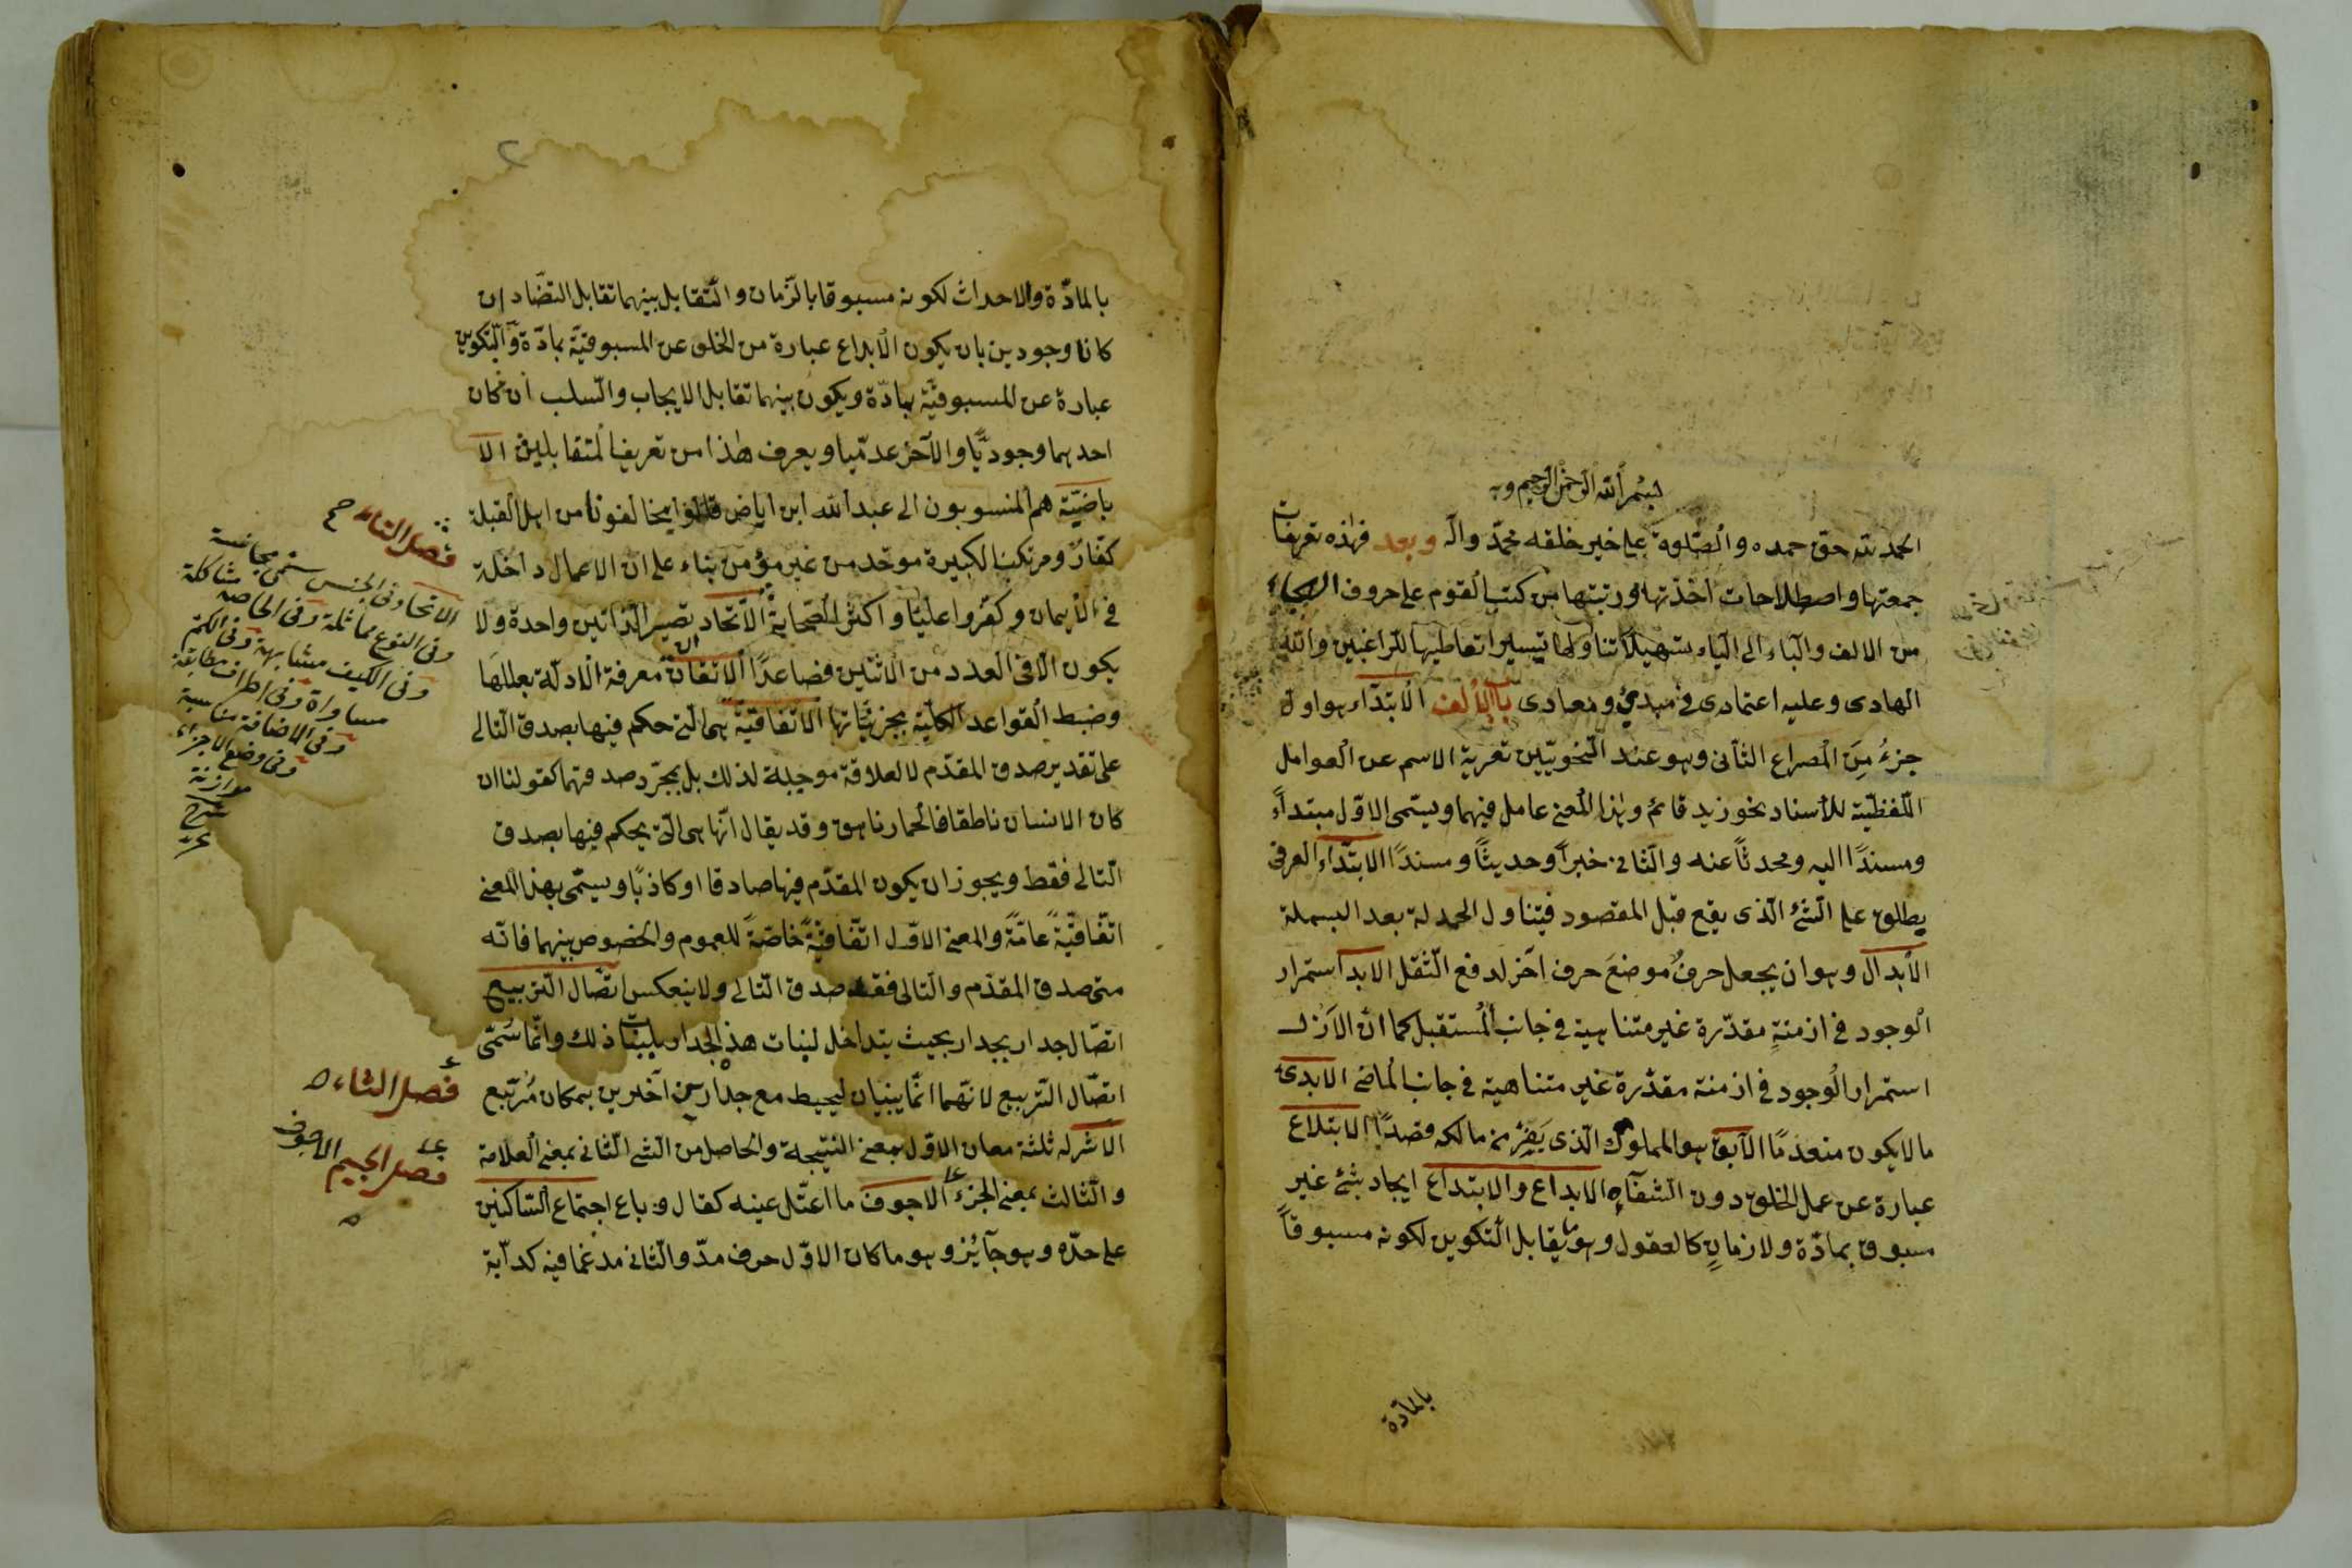 بسم الله الرحمن الرحيم وبه
الحمد لله حق حمده والصّلوة على خير خلقه محمّد وآله وبعد فهذه تعريفات
جمعتها واصطلاحات اخذتها ورتبتها من كتب القوم على حروف الهجاء
من الالف والباء الى الياء تسهيلا تناولها تيسيرا تعاطيها للراغبين والله
الهادى وعليه اعتمادى فى مبدئ ومعادى باب الالف الابتداء هو اول
جزءٍ مِن المصراع الثانى وهو عند النّحويّين تعرية الاسم عن العوامل
اللّفظيّة للأسناد نحو زيد قائم وهذا المعنى عامل فيهما ويسمّى الاوّل مبتداءً
ومسندًا اليه ومحدثًا عنه والثانى خبراً وحديثًا ومسندًا الابتداء العرفى
يطلق على الشئ الّذى يقع قبل المقصود فيتناول الحمدلة بعد البسملة
الأبدال وهو ان يجعل حرفٌ موضعَ حرف آخر لدفع الثّقل الابد استمرار
الوجود فى ازمنةٍ مقدّرة غير متناهية فى جانب المستقبل كما انّ الازل
استمرار الوجود فى ازمنة مقدّرة غير متناهية فى جانب الماضى الابدى
ما لا يكون منعدمًا الآبق هو المملوك الّذى يَفِرّ من مالكه قصدًا الابتلاع
عبارة عن عمل الخلق دون الشفاه الابداع والابتداع ايجاد شئ غير
مسبوق بمادّة ولا زمانٍ كالعقول وهو يقابل التكوين لكونه مسبوقاً
بالمادّة
بالمادّة والاحداث لكونه مسبوقا بالزّمان والتّقابل بينهما تقابل التضّاد ان
كانا وجودين بان يكون الأبداع عبارة من الخلق عن المسبوقيّة بمادّة والتّكوين
عبارة عن المسبوقيّة بمادّة ويكون بينهما تقابل الايجاب والسّلب ان كان
احدهما وجوديًّا والآخر عدمّيا ويعرف هذا من تعريف المتقابلين الا
باضيّة هم المنسوبون الى عبد الله ابن اباض قالوا مخالفونا من اهل القبلة
كفّار ومرتكب الكبيرة موحّد من غير مؤمن بناء على ان الاعمال داخلة
فى الأيمان وكفّروا عليًّا واكثر الصّحابة الاتّحاد تصيير الذاتين واحدة ولا
يكون الّا فى العدد من الاثنين فصاعدًا الاتقان معرفة الادلّة بعللها
وضبط القواعد الكلّيّة بجزئيّاتها الاتّفاقيّة هى التى حكم فيها بصدق التّالى
على تقدير صدق المقدّم لا لعلاقة موجبة لذلك بل بمجرّد صدقهما كقولنا ان
كان الانسان ناطقا فالحمار ناهق وقد يقال انّها هى التى يحكم فيها بصدق
التّالى فقط ويجوز ان يكون المقدّم فيها صادقا او كاذبًا ويسمّى بهذا المعنى
اتّفاقيّةً عامّةً والمعنى الاوّل اتّفاقيّةً خاصّةً للعموم والخصوص بينهما فانّه
متى صدق المقدّم والتّالى فقد صدق التّالى ولا ينعكس اتصّال التربيع
اتصّال جدار بجدار بحيث يتداخل لبنات هذا الجدار بلبنات ذلك وانّما سُمّى
اتصّال التّربيع لانّهما انّما يبنيان ليحيط مع جدارين آخرين بمكان مُربّع
الاثر له ثلثة معان الاوّل بمعنى النتيجة والحاصل من الشئ الثّانى بمعنى العلامة
والثّالث بمعنى الجزء الاجوف ما اعتّل عينه كقال وباع اجتماع السّاكنين
على حدّه وهو جآئز وهو ما كان الاوّل حرف مدّ والثّانى مدغما فيه كدآبّة
فصل التاء
الاتحاد فى الجنس يسمى مجانسة
وفى النوع مماثلة وفى الخاصه مشاكلة
وفى الكيف مشابهة وفى الكم
مساواة وفى اطراف مطابقة
وفى الاضافة مناسبة
وفى وضع الاجزاء
موازنة
شرح
فصل الثاء
فصل الجيم الاجوف